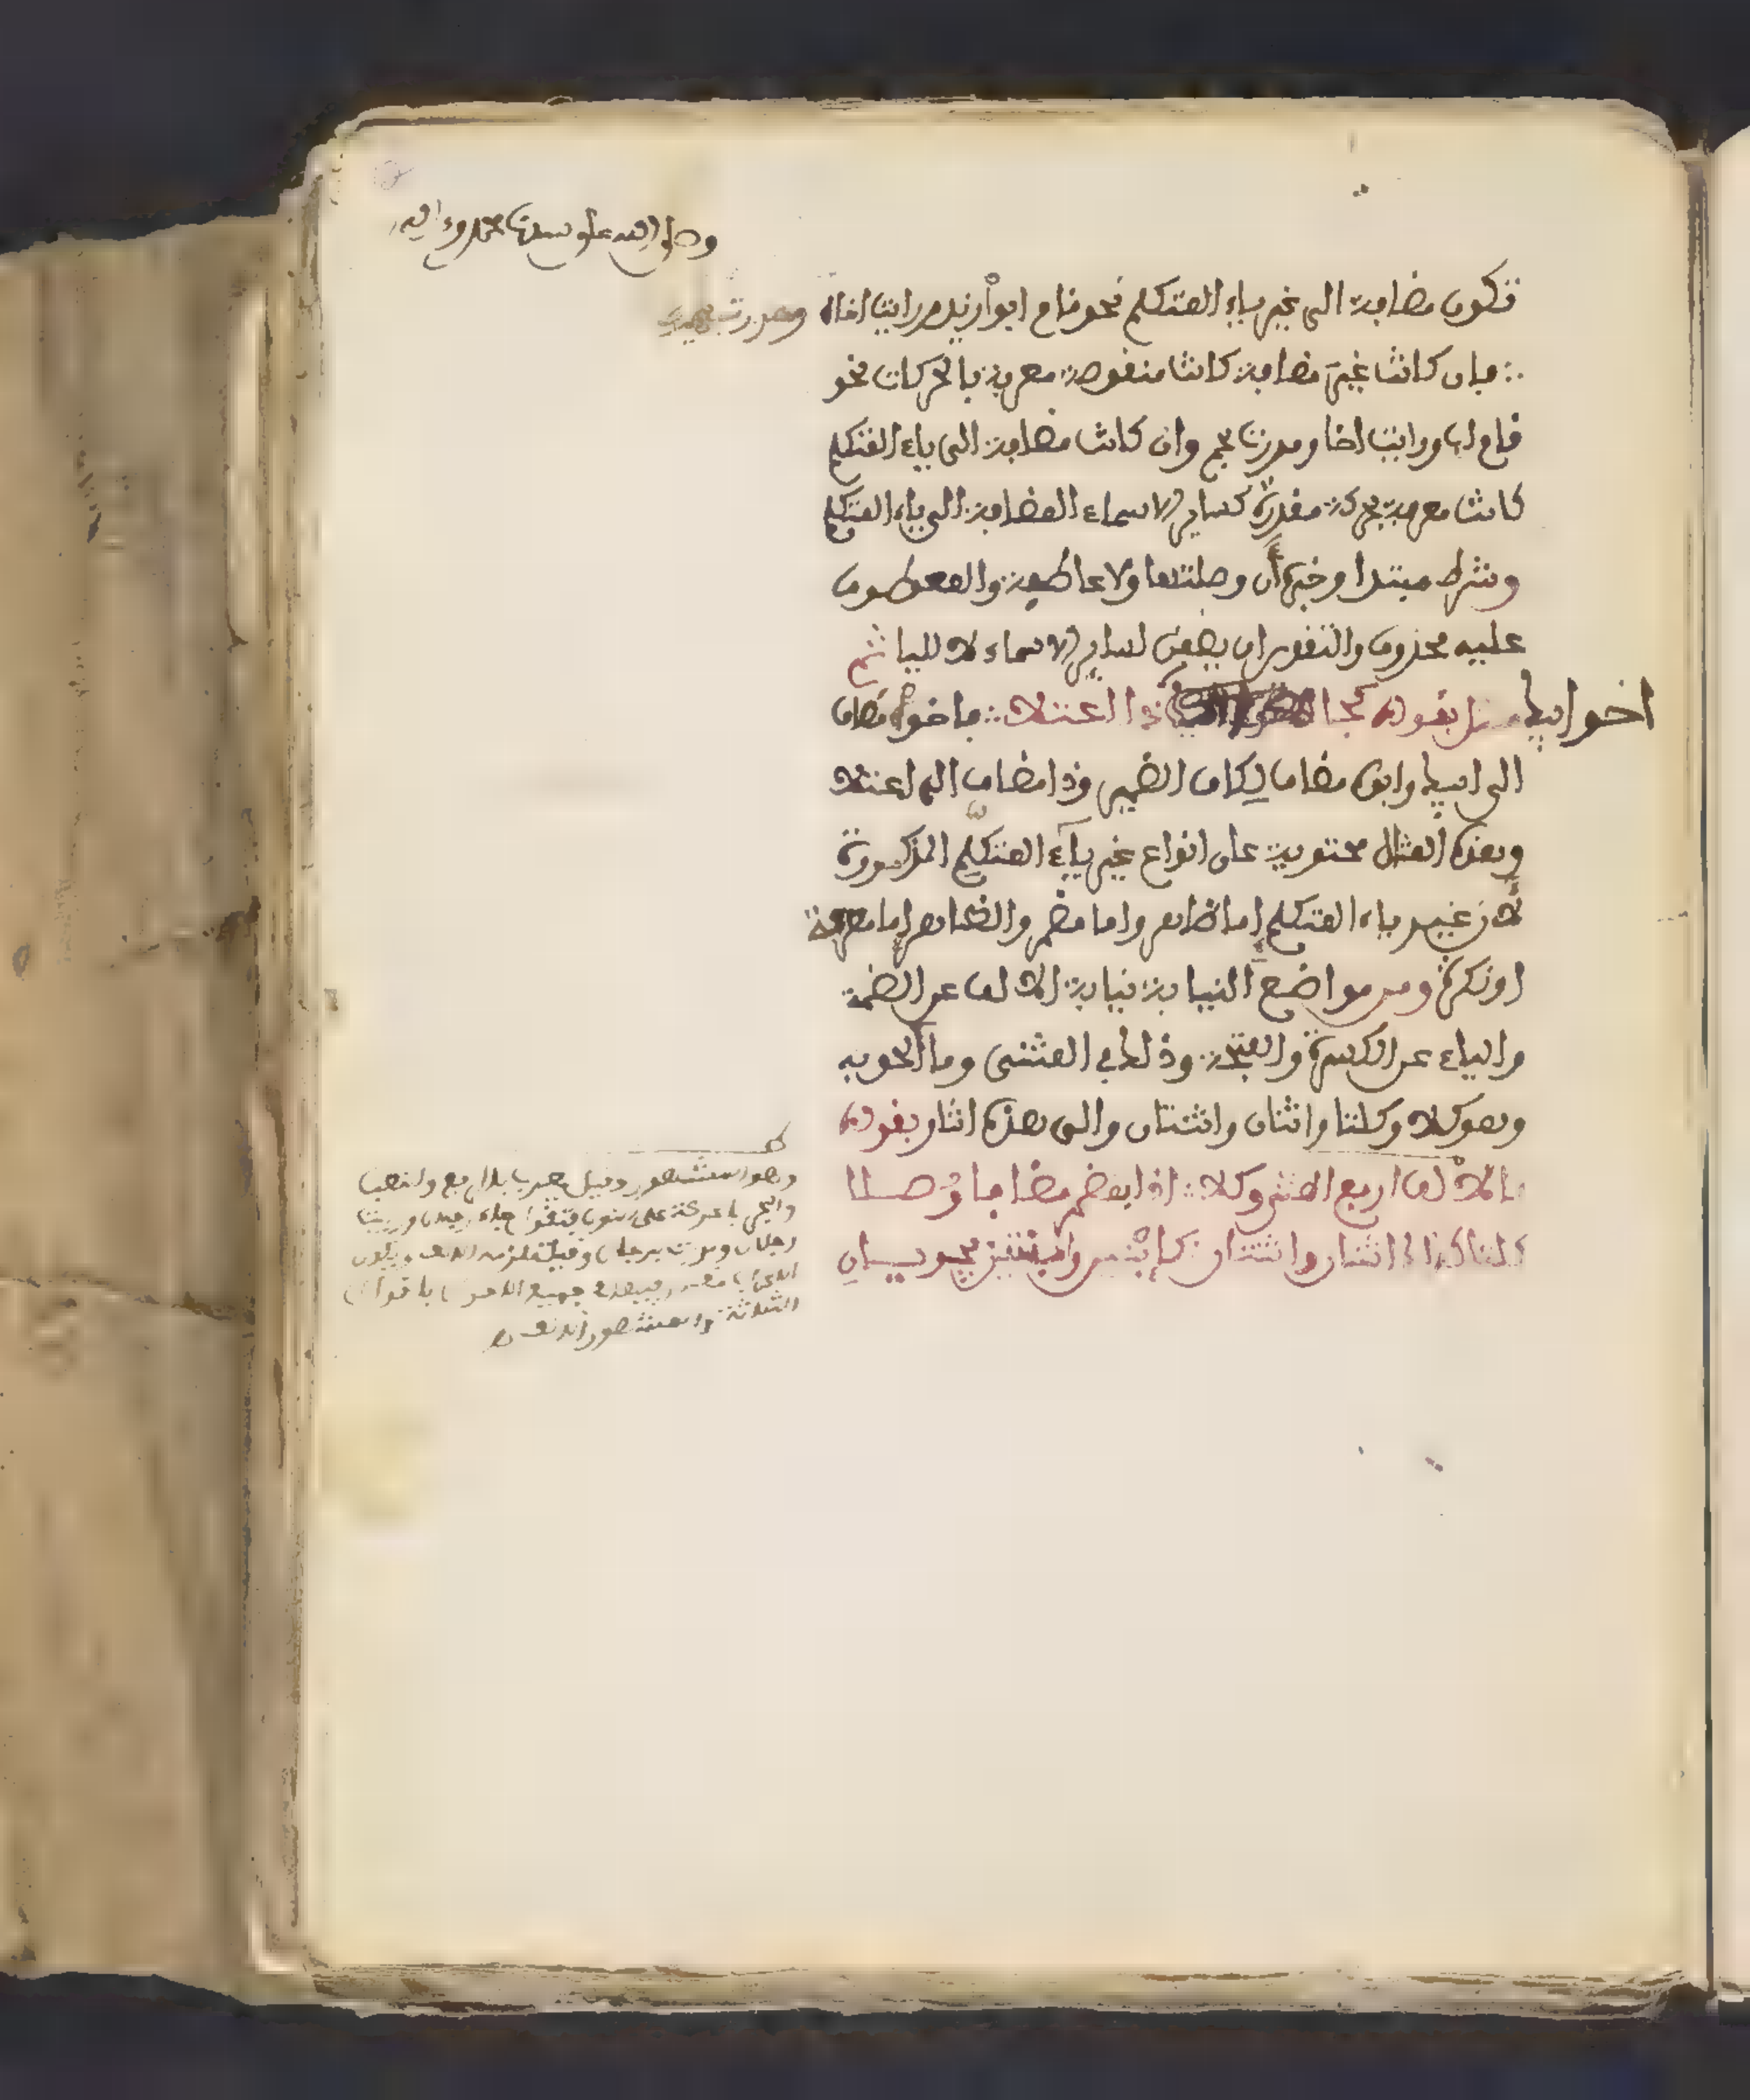 وصلى الله على سيدنا محمد وءاله
تكون مضافة الى غير ياء المتكلم نحو قام ابوا زيد ورايت اخاه ومررت بحميك
فإن كانت غير مضافة كانت منقوصة معربة بالحركات نحو
قام اب ورايت اخا ومررت بحم وان كانت مضافة الى ياء المتكلم
كانت معربة بحركة مقدرة كساير الاسماء المضافة الى ياء المتكلم
وشرط مبتدا وخبره أن وصلتها ولا عاطفة والمعطوف
عليه محذوف والتقدير ان يضفن لساير الاسماء لا لليا ثم
مثل بقوله كجا اخو ابيك ذا اعتلا فاخو مضاف
الى ابيك وابى مضاف لكاف الضمير وذا مضاف الى اعتلا
وهذه المثل محتوية على انواع غير ياء المتكلم المذكورة
لان غير ياء المتكلم إما ظاهر واما مضمر والظاهر إما معرفة
او نكرة ومن مواضع النيابة نيابة الالف عن الضمة
والياء عن الكسرة والفتحة وذلك في المثنى وما الحق به
وهو كلا وكلتا واثنان واثنتان والى هذه اشار بقوله
بالالف ارفع المثنى وكلا اذا بمضمر مضافا وُصلا
كلتا كذاك اثنان واثنتان كابنين وابنتين يجريان
وهو المشهور وقيل يعرب بالرفع والنصب
والجر بالحركة على النون فتقول جاء رجلان ورايت
رجلان ومررت برجلان وقيل تلزمه الالف ويكون
الثلاثة والمشهور الالف